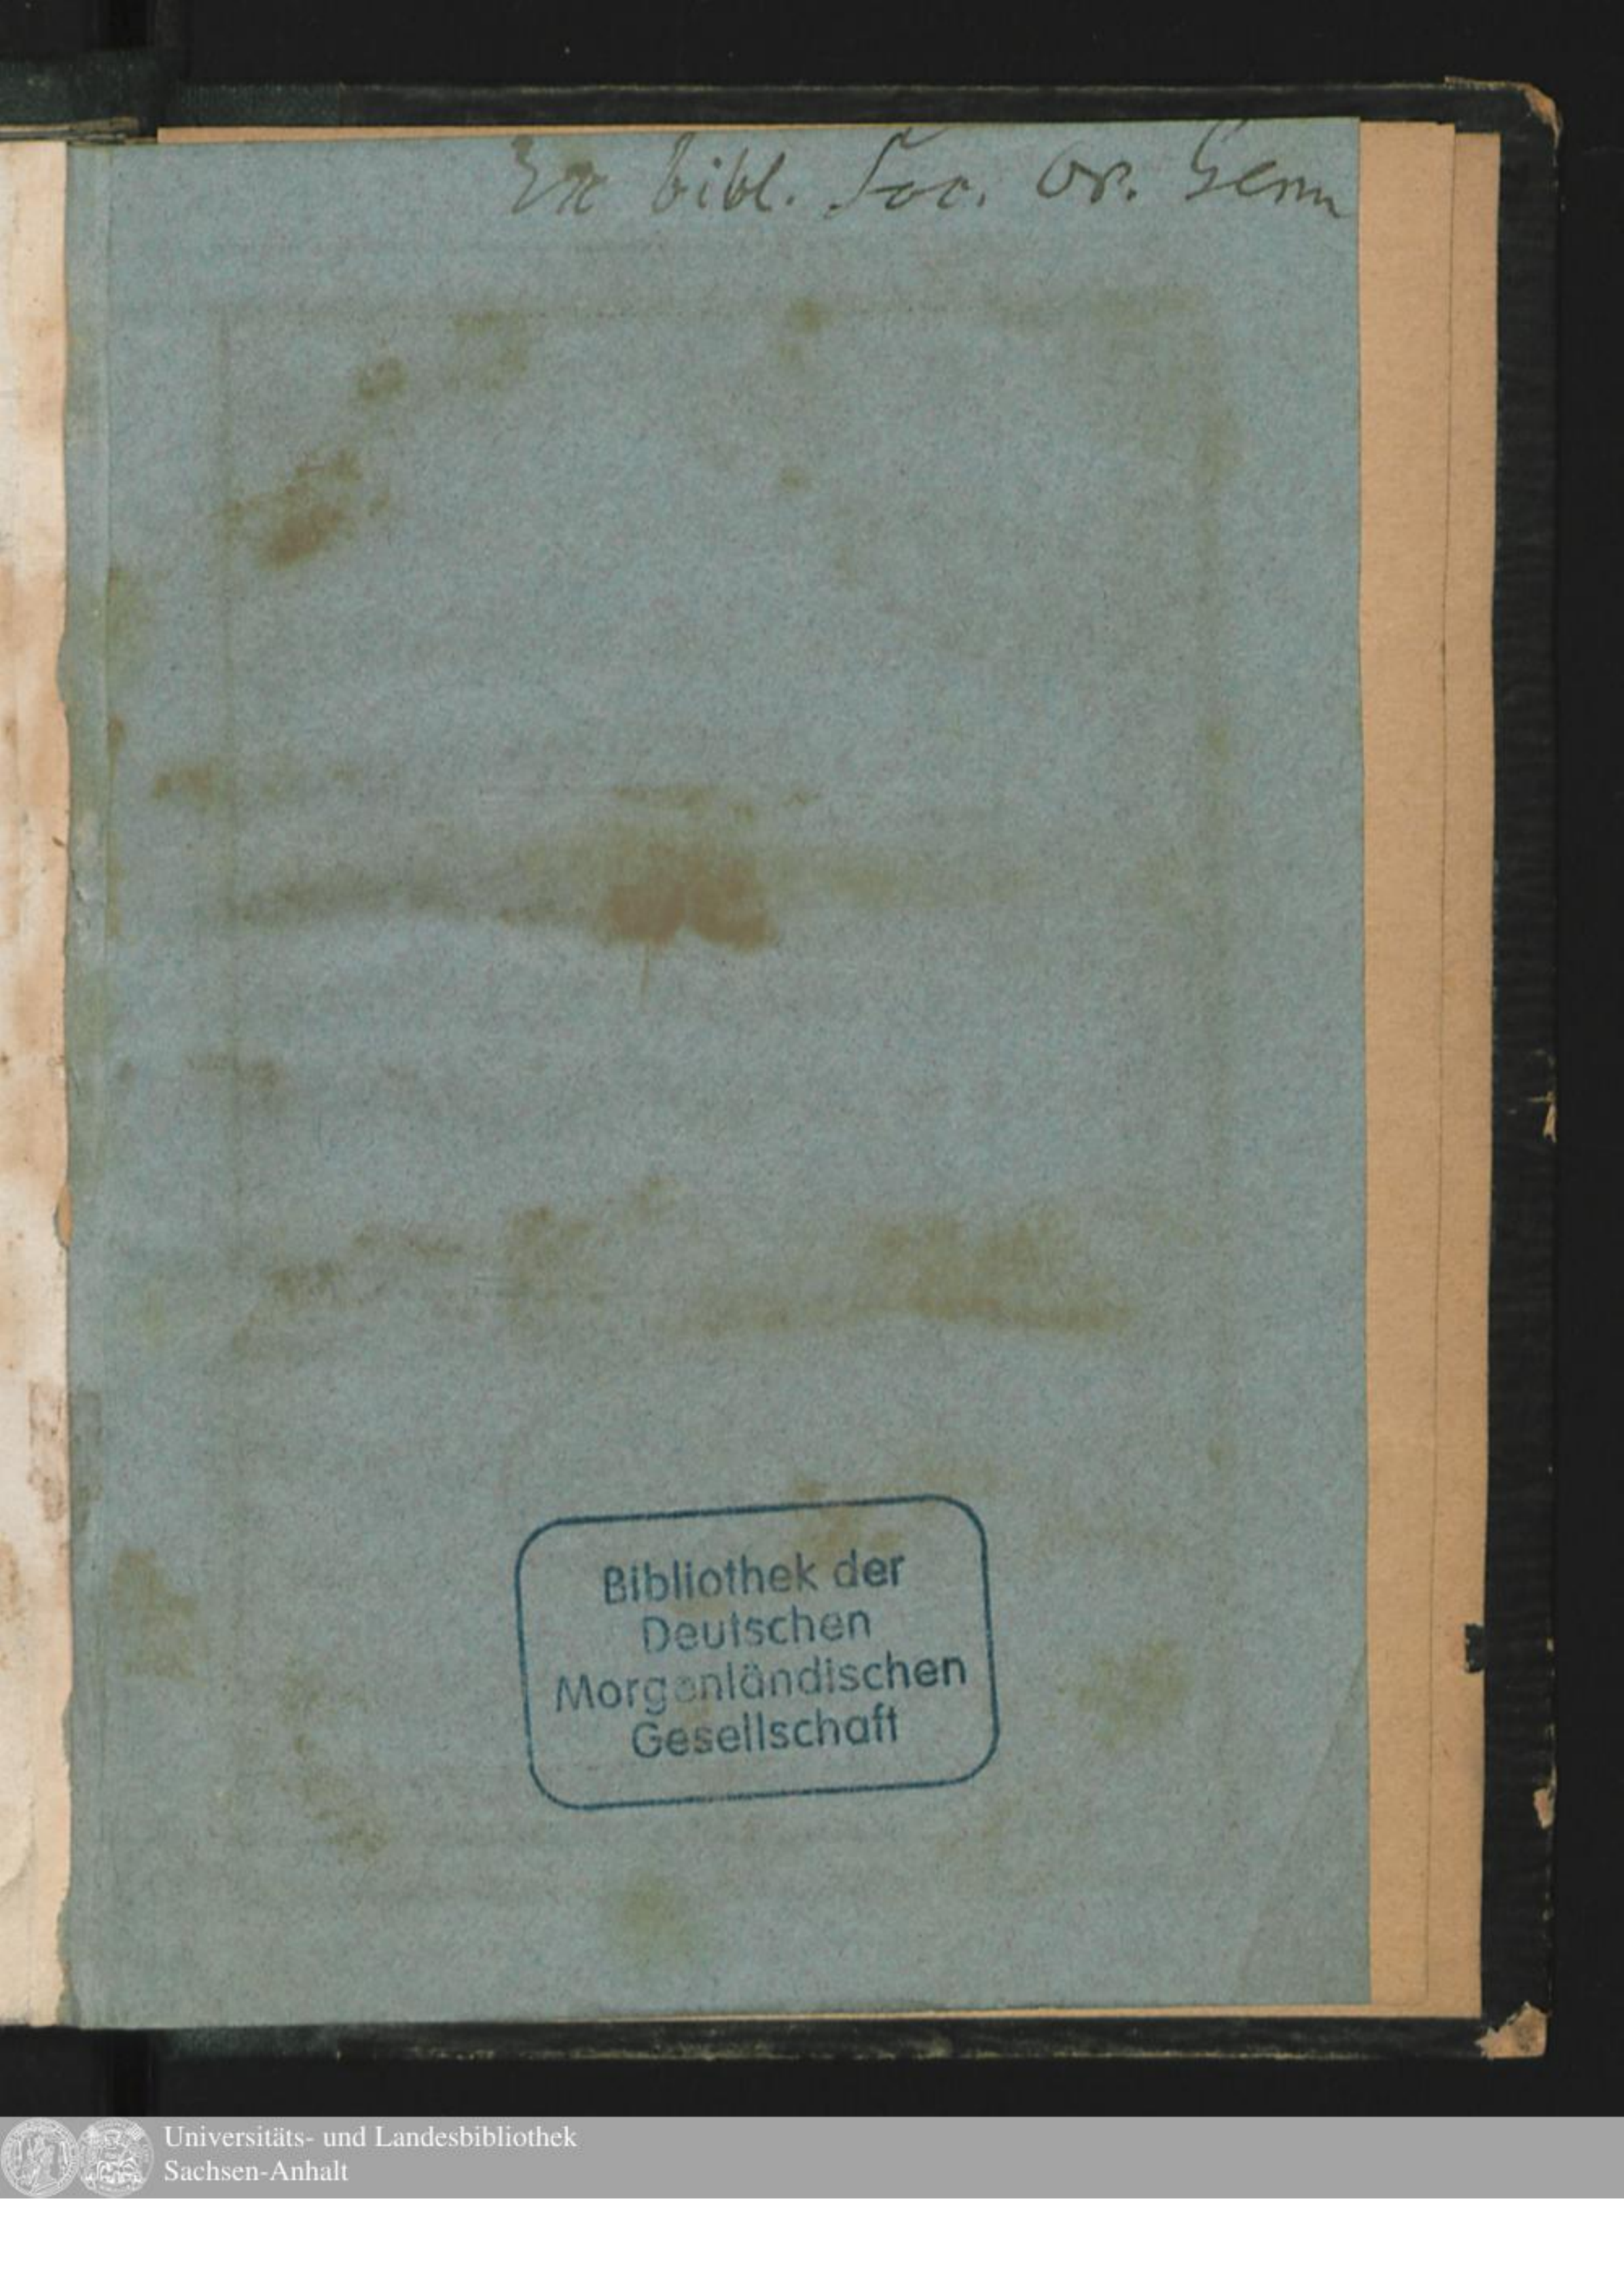 Ex bibl. Soc. Or. Germ
Bibliothek der
Deutschen
Morgenländischen
Gesellschaft
Universitäts- und Landesbibliothek
Sachsen-Anhalt